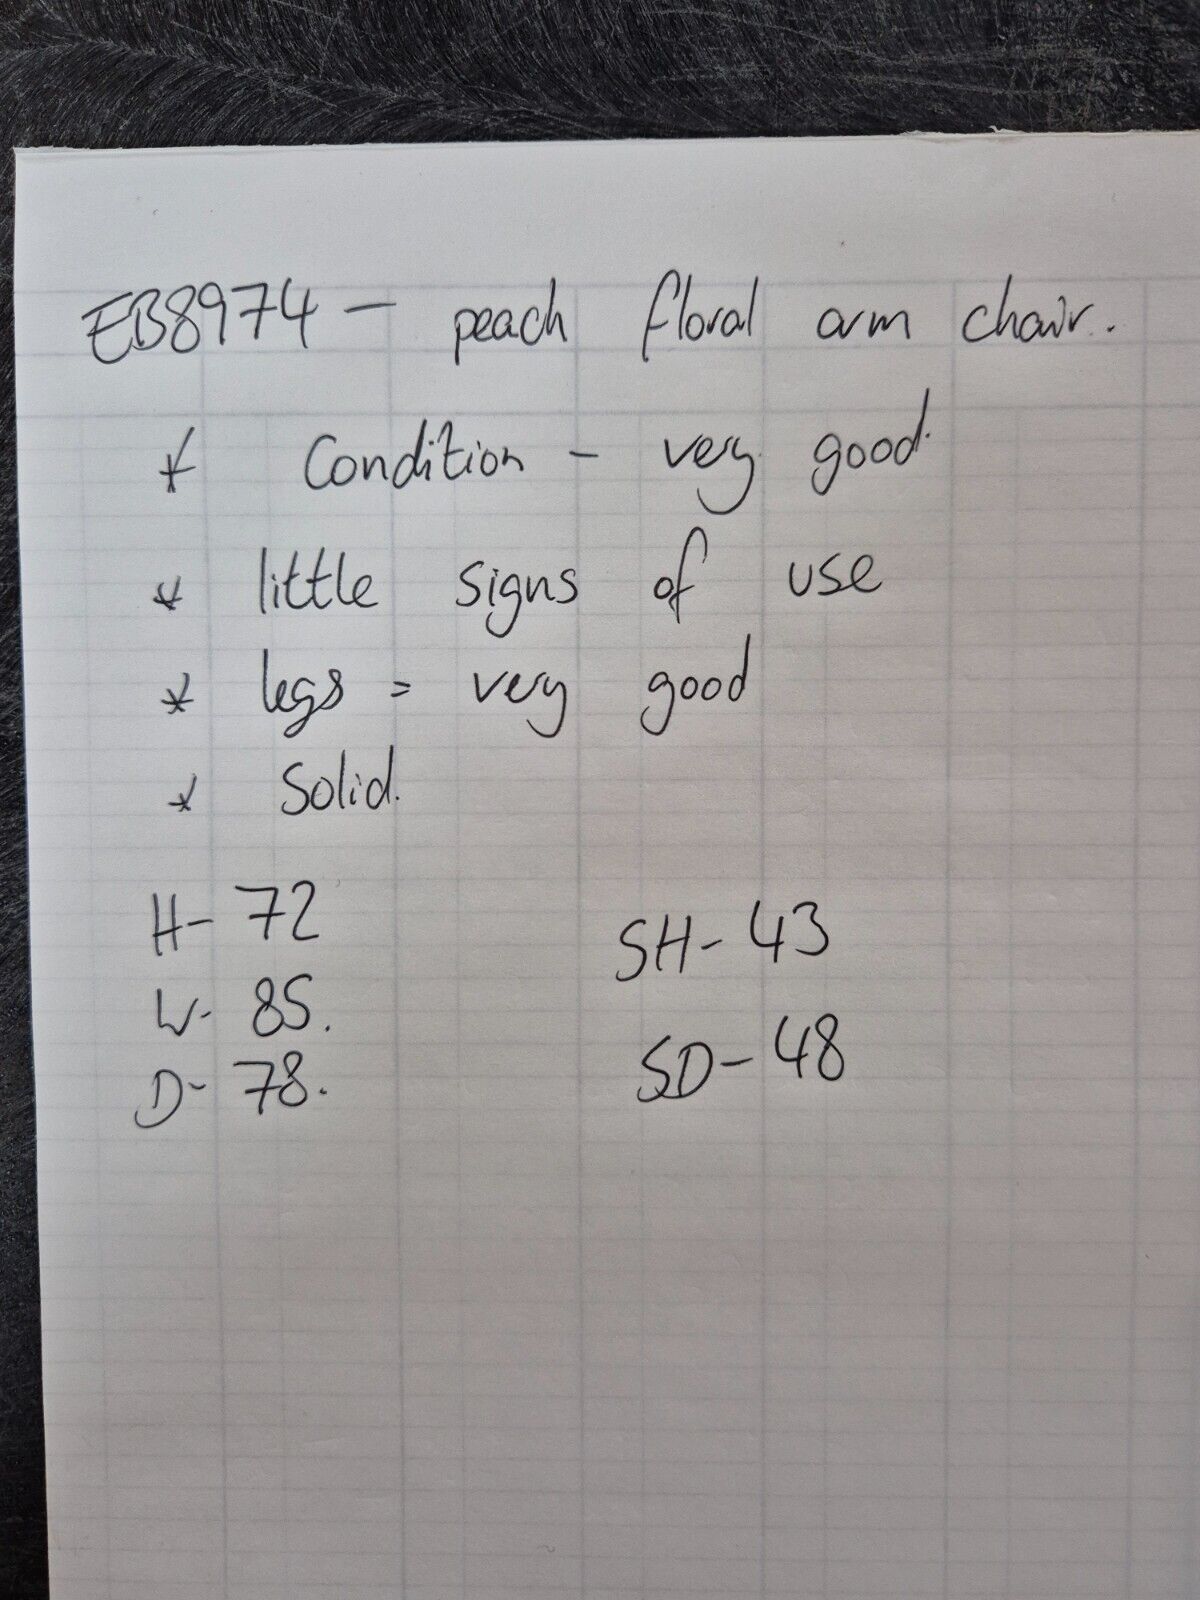 EB8974 - peach floral arm chair.
* Condition - very good.
* little signs of use
* legs = very good
* Solid.
H- 72
W- 85.
D- 78.
SH- 43
SD- 48